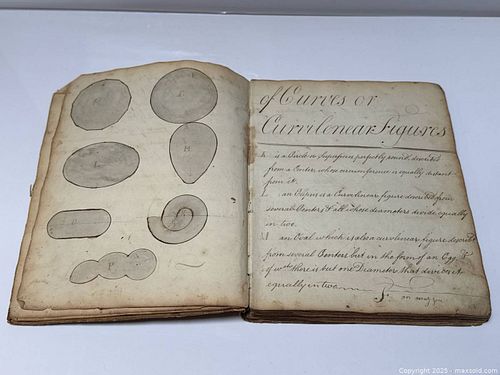 of Curves or
Curvilonear Figures
K is a Circle or Superficies perfectly round, described
from a Center whose circumference is equally distant
from it.
L an Elipsis is a Curvilonear figure described from
several Centers & all whose diameters divide equally
in two.
M an Oval which is also a curvlonear figure described
from several Centers but in the form of an Egg &
of wch there is but one Diameter that divides it
equally in two
L
M
P
Copyright 2025 - maxsold.com